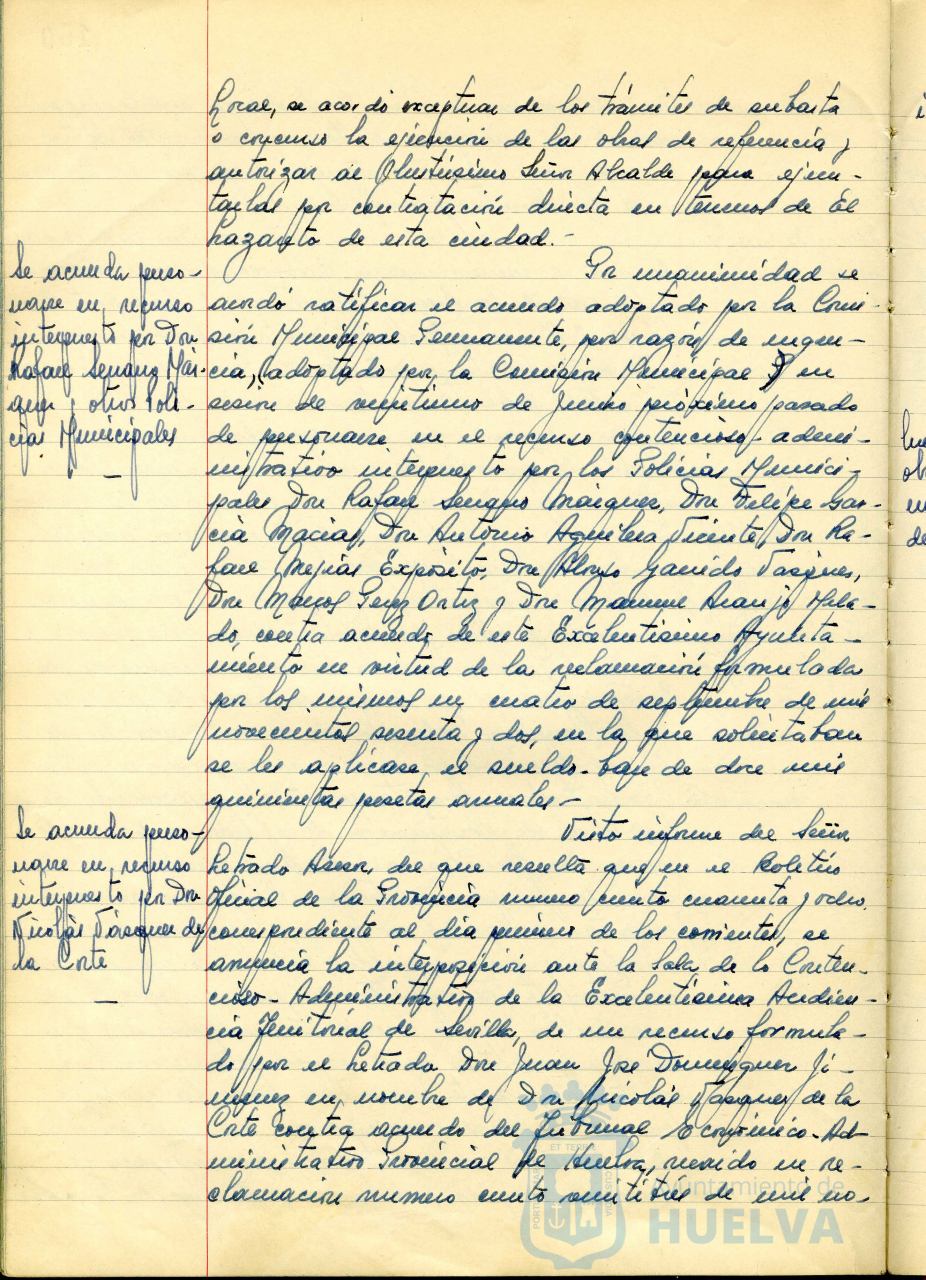 Local, se acordó exceptuar de los trámites de subasta
o concurso la ejecución de las obras de referencia y
autorizar al Ilustrísimo Señor Alcalde para ejecu-
tarlas por contratación directa en terrenos de El
Lazareto de esta ciudad.-
Se acuerda perso-
narse en recurso
interpuesto por Don
Rafael Serrano Már-
quez y otros Poli-
cías Municipales
Por unanimidad se
acordó ratificar el acuerdo adoptado por la Comi-
sión Municipal Permanente, por razón de urgen-
cia, adoptado por la Comisión Municipal P en
sesión de veintiuno de Junio próximo pasado
de personarse en el recurso contencioso-admi-
nistrativo interpuesto por los Policías Munici-
pales Don Rafael Serrano Márquez, Don Felipe Gar-
cía Macías, Don Antonio Aguilera Vicente, Don Ra-
fael Mejías Expósito, Don Alonso Garrido Vázquez,
Don Marcos Perez Ortiz y Don Manuel Araujo
do, contra acuerdo de este Excelentísimo Ayunta-
miento en virtud de la reclamación formulada
por los mismos en cuatro de septiembre de mil
novecientos sesenta y dos, en la que solicitaban
se les aplicase el sueldo-base de doce mil
quinientas pesetas anuales.-
Se acuerda perso-
narse en recurso
interpuesto por Don
Nicolás Vázquez de
la Corte
Visto informe del Señor
Letrado Asesor, del que resulta que en el Boletín
Oficial de la Provincia número ciento cuarenta y ocho,
correspondiente al día primero de los corrientes, se
anuncia la interposición ante la Sala de lo Conten-
cioso-Administrativo de la Excelentísima Audien-
cia Territorial de Sevilla, de un recurso formula-
do por el Letrado Don Juan José Domínguez Ji-
menez en nombre de Don Nicolás Vazquez de la
Corte contra acuerdo del Tribunal Económico-Ad-
ministrativo Provincial de Huelva, recaído en re-
clamación número ciento veintitres de mil no-
Ayuntamiento de
HUELVA